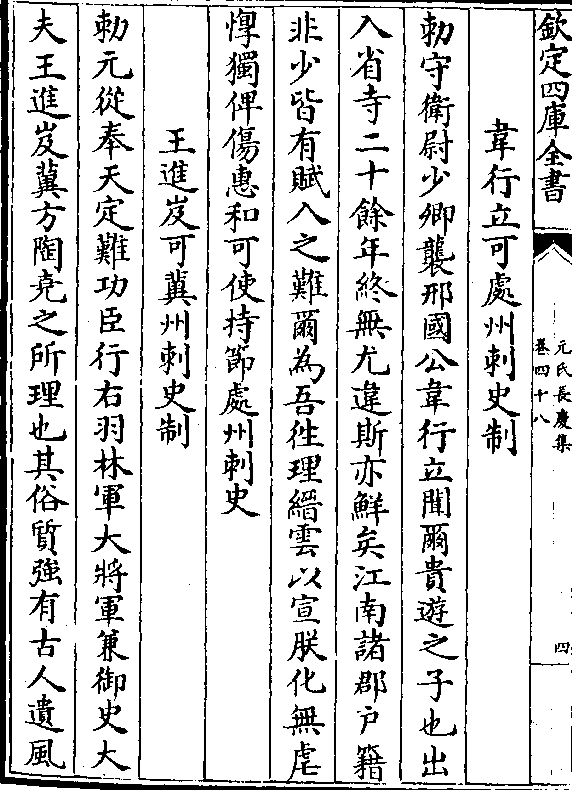 欽定四庫全書
元氏長慶集
卷四十八
四
韋行立可處州刺史制
勅守衛尉少卿襲邢國公韋行立聞爾貴遊之子也出
入省寺二十餘年終無尤違斯亦鮮矣江南諸郡户籍
非少皆有賦入之難爾為吾徃理縉雲以宣朕化無虐
惸獨俾傷惠和可使持節處州刺史
王進岌可冀州刺史制
勅元從奉天定難功臣行右羽林軍大將軍兼御史大
夫王進岌冀方陶堯之所理也其俗質強有古人遺風